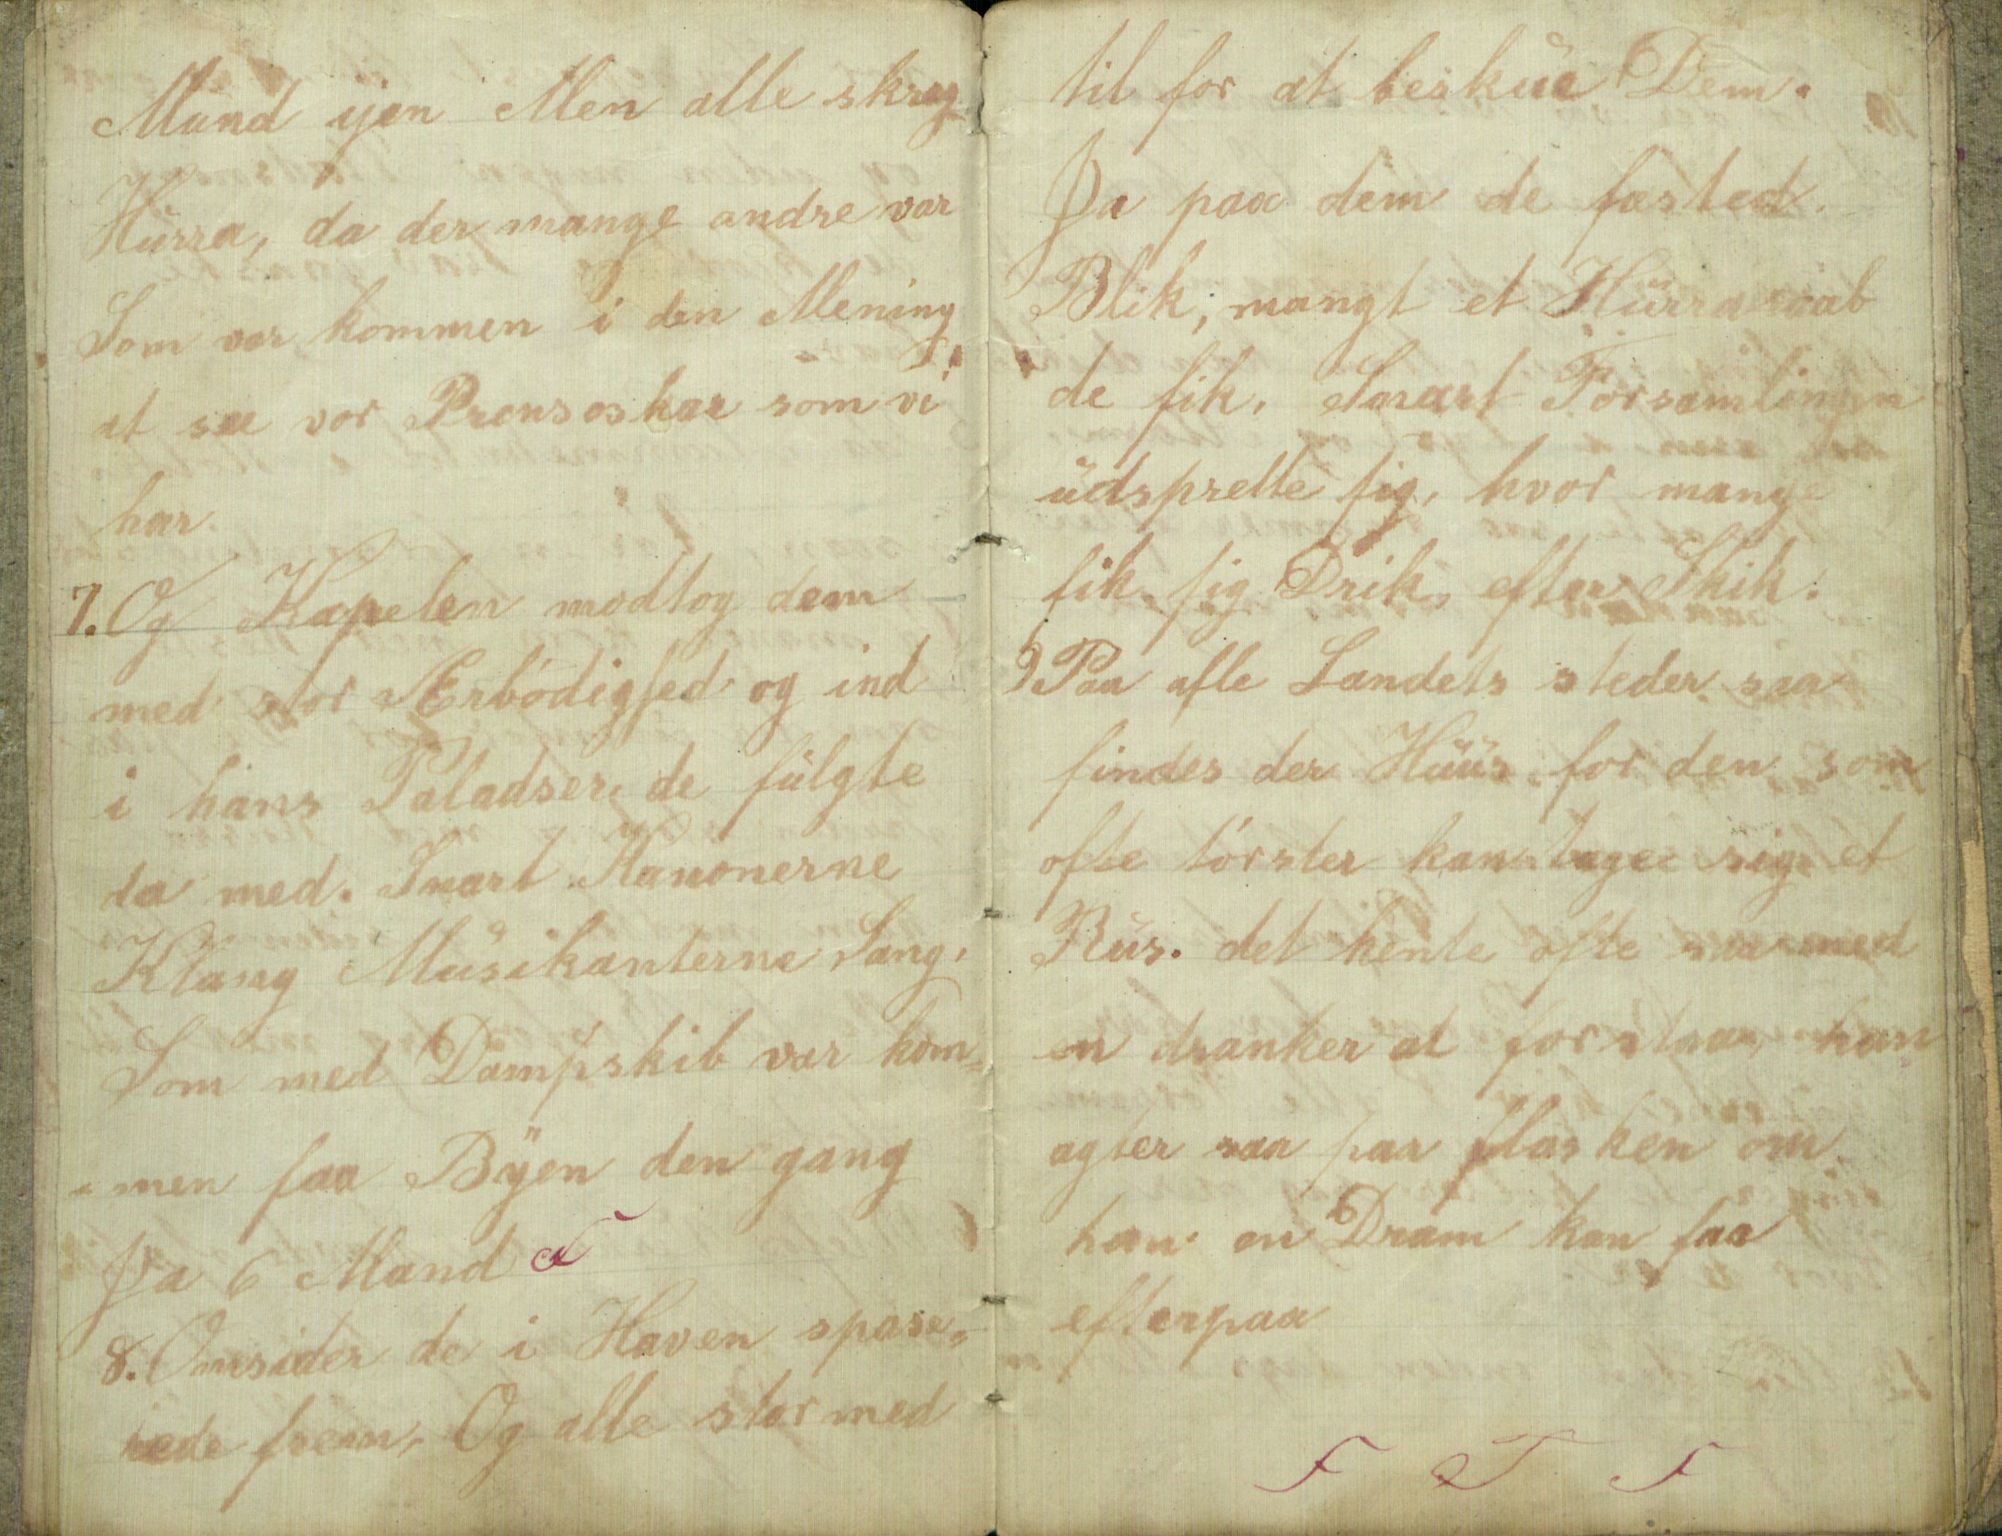 Mund ijen Men alle skreg
Hurra, da der mange andre var
Som var kommen i den Mening
at see vor Prensoskar som vi
har
7. Og Kapelen modtog dem
med stor Ærbödighed og ind
i hans Paladser, de fülgte
da med. Snart Kanonerne
Klang Müsikanterne Sang,
Som med Dampskib var kom=
=men faa Byen den gang
Ja 6 Mand F
8. Omsider de i Haven spase=
rede frem, Og alle stormed
til for at beskue Dem.
Ja paa dem de fasted
Blik, mangt et Hurraraab
de fik, Snart Forsamlingen
üdsprette sig, hvor mange
fik sig Drik, efter Skik.
9 Paa alle Landets steder saa
findes der Hüüs, for den som
ofte törster kan tage sig et
Rüs. det hente ofte maa med
en dranker at forstaa, han
agter saa paa flasken om
han en Dram kan faa
efterpaa
F T F